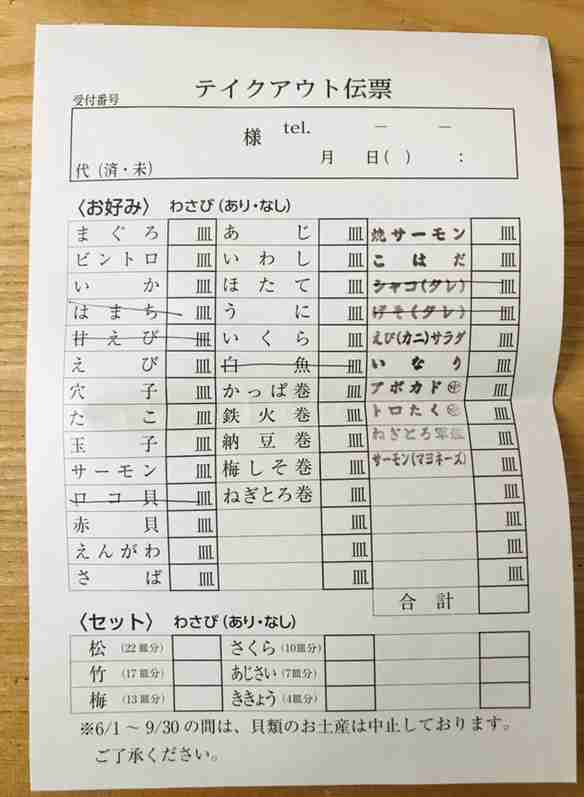 テイクアウト伝票
受付番号
様 tel. − −
月 日( ) :
代(済・未)
〈お好み〉 わさび(あり・なし)
まぐろ 皿 あじ 皿 焼サーモン 皿
ビントロ 皿 いわし 皿 こはだ 皿
いか 皿 ほたて 皿 シャコ(タレ) 皿
はまち 皿 うに 皿 げそ(タレ) 皿
甘えび 皿 いくら 皿 えび(カニ)サラダ 皿
えび 皿 白魚 皿 いなり 皿
穴子 皿 かっぱ巻 皿 アボカド 皿
たこ 皿 鉄火巻 皿 トロたく 皿
玉子 皿 納豆巻 皿 ねぎとろ軍艦 皿
サーモン 皿 梅しそ巻 皿 サーモン(マヨネーズ) 皿
ロコ貝 皿 ねぎとろ巻 皿 皿
赤貝 皿 皿 皿
えんがわ 皿 皿 皿
さば 皿 皿 皿
合計
〈セット〉 わさび(あり・なし)
松 (22皿分) さくら (10皿分)
竹 (17皿分) あじさい (7皿分)
梅 (13皿分) ききょう (4皿分)
※6/1～9/30の間は、貝類のお土産は中止しております。
ご了承ください。